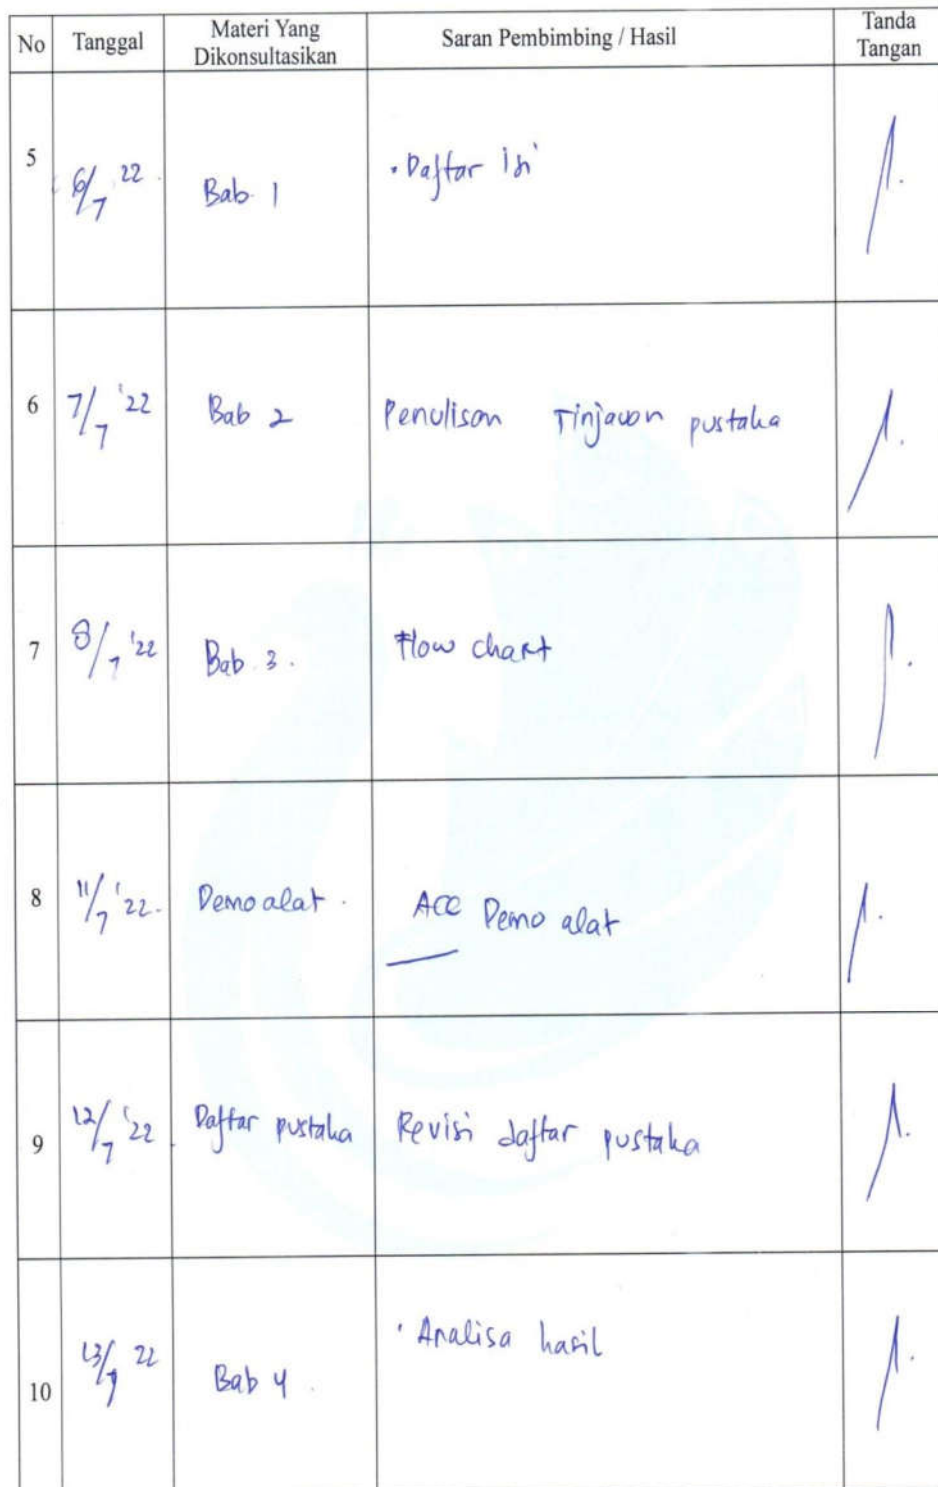 No Tanggal Materi Yang Dikonsultasikan Saran Pembimbing / Hasil Tanda Tangan
5 6/7 22 Bab 1 • Daftar isi
6 7/7 '22 Bab 2 Penulisan Tinjauan pustaka
7 8/7 '22 Bab 3. Flow chart
8 11/7 '22. Demo alat. ACC Demo alat
9 12/7 '22 Daftar pustaka Revisi daftar pustaka
10 13/7 22 Bab 4. • Analisa hasil